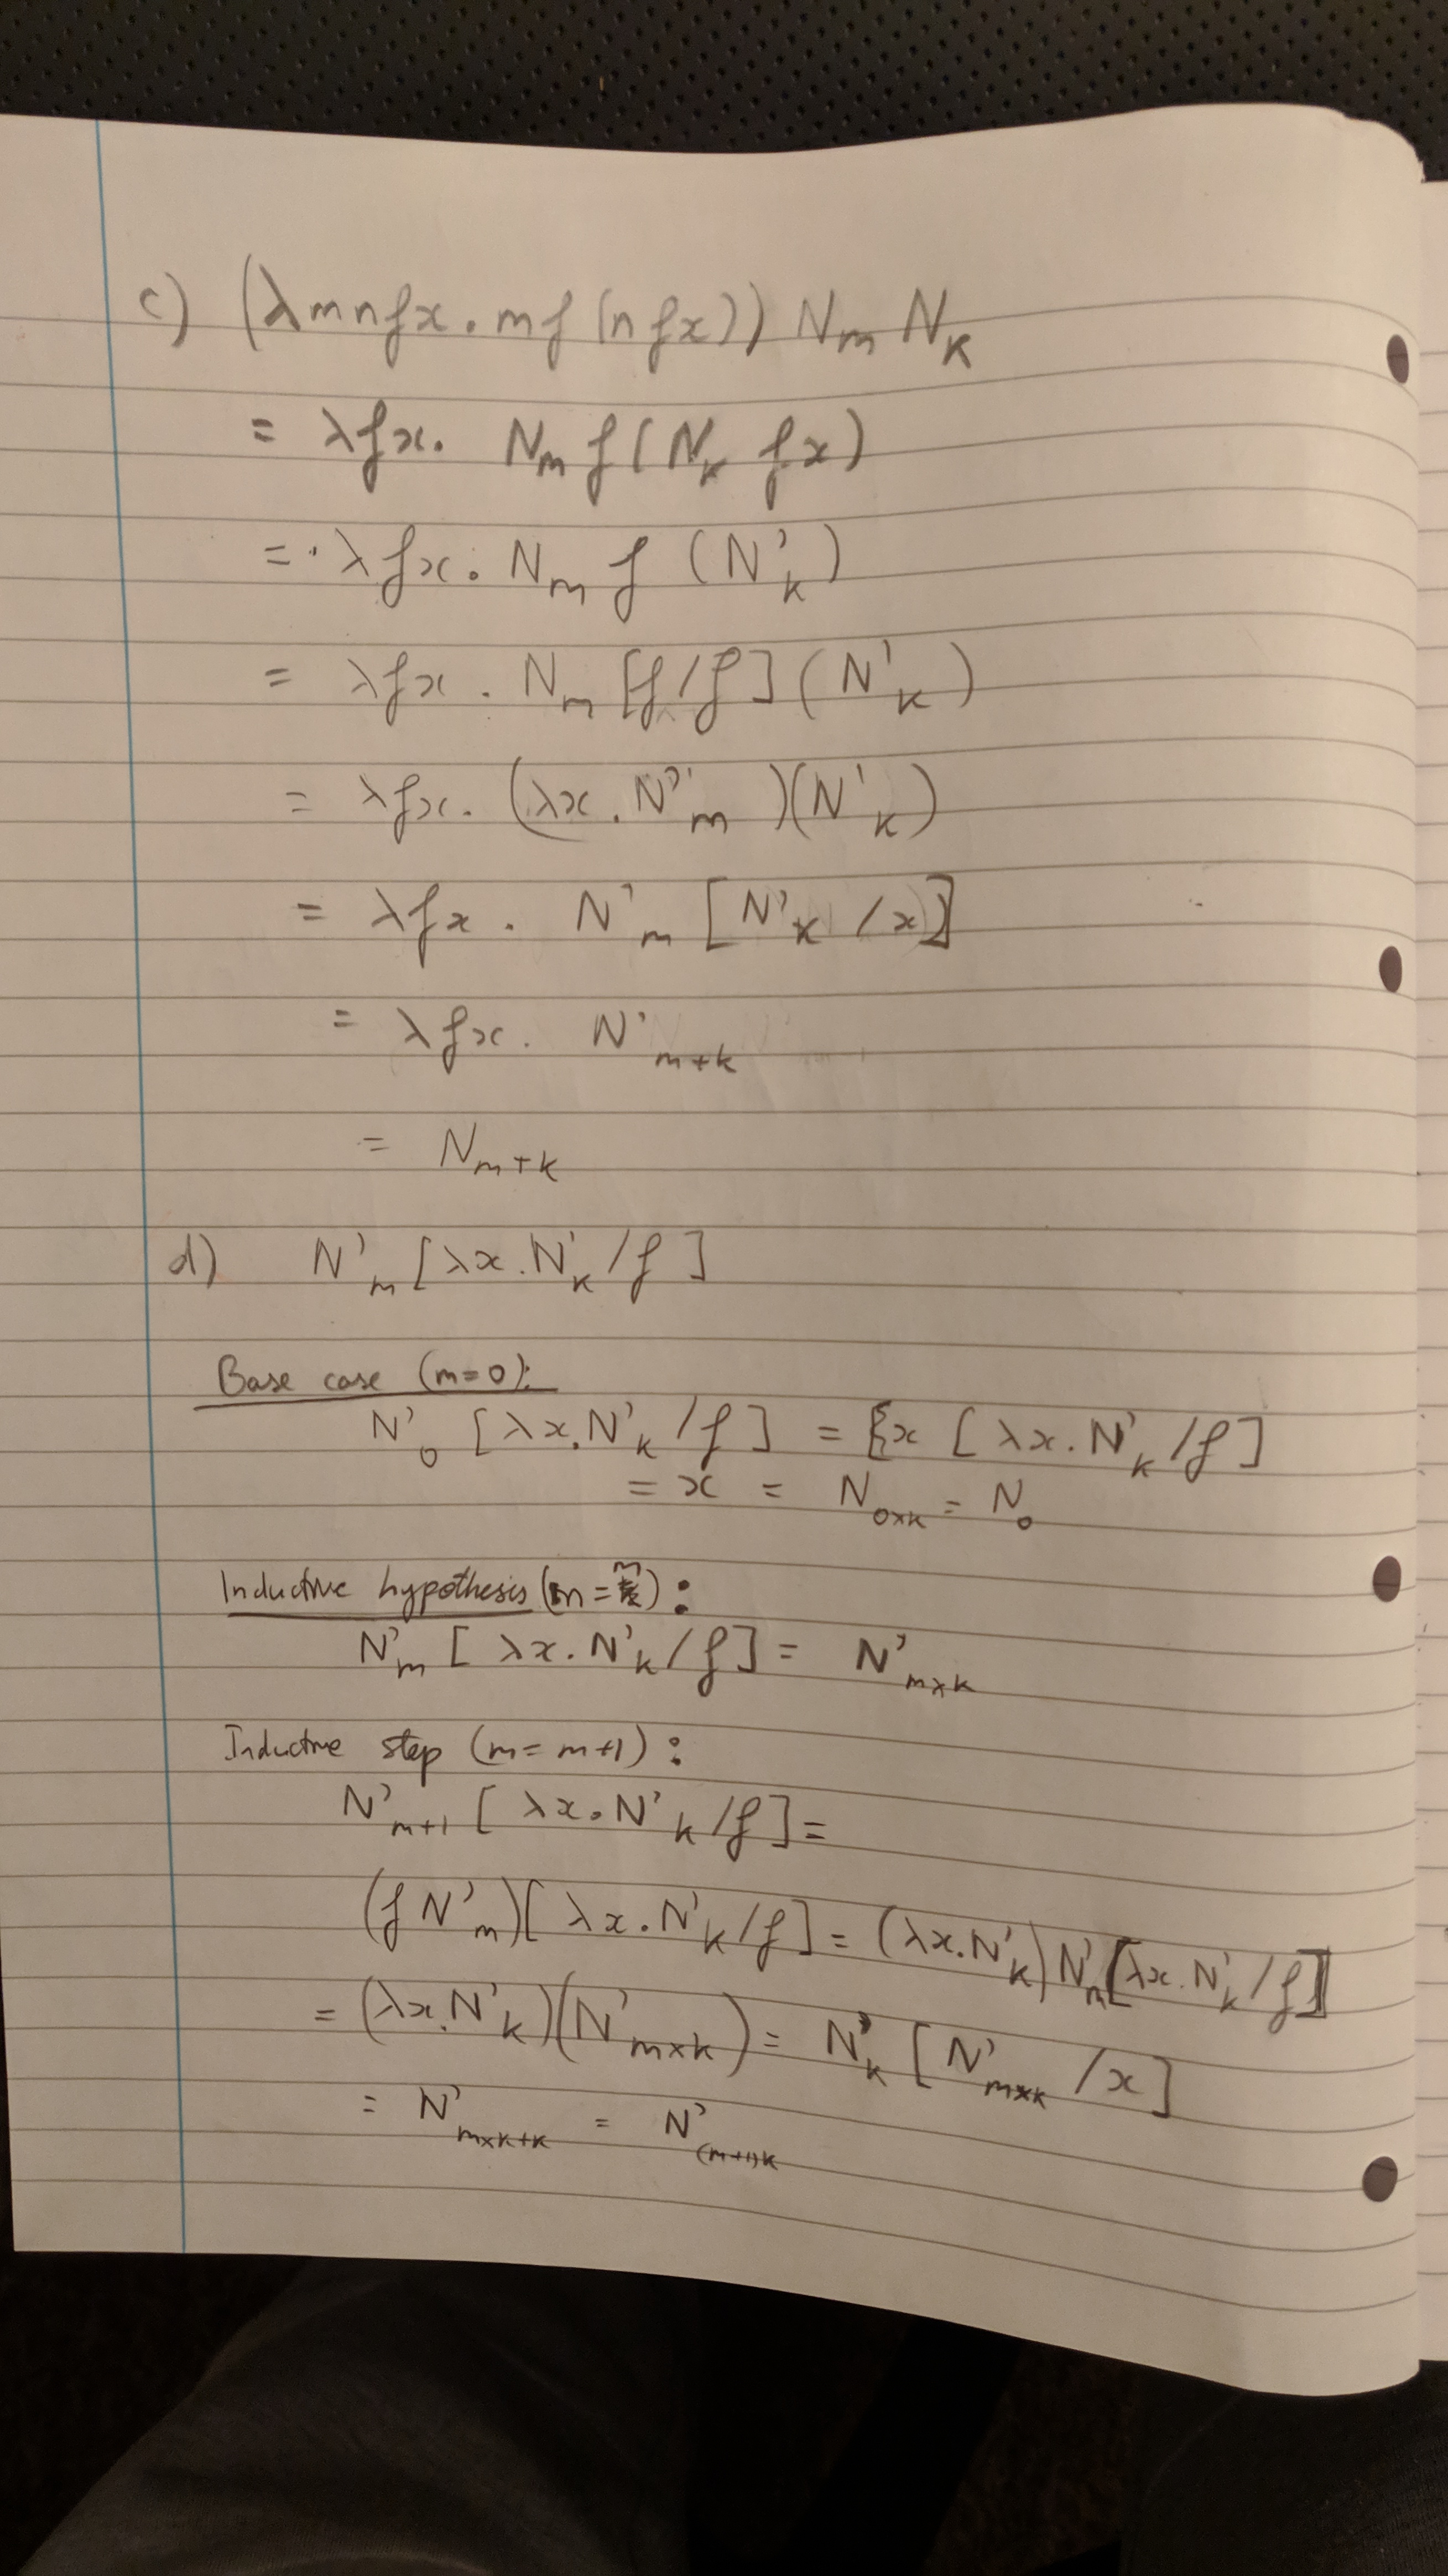 c) (λmnfx.mf(nfx)) N_m N_k
= λfx. N_m f(N_k fx)
= λfx. N_m f (N'_k)
= λfx. N_m [f/f] (N'_k)
= λfx. (λx.N'_m)(N'_k)
= λfx. N'_m [N'_k /x]
= λfx. N'_{m+k}
= N_{m+k}
d) N'_m [λx.N'_k/f]
Base case (m=0):
N'_0 [λx.N'_k/f] = x [λx.N'_k/f]
= x = N_{0×k} = N_0
Inductive hypothesis (m=m):
N'_m [λx.N'_k/f] = N'_{m×k}
Inductive step (m=m+1):
N'_{m+1} [λx.N'_k/f] =
(f N'_m)[λx.N'_k/f] = (λx.N'_k) N'_m[λx.N'_k/f]
= (λx.N'_k)(N'_{m×k}) = N'_k [N'_{m×k} /x]
= N'_{m×k+k} = N'_{(m+1)k}